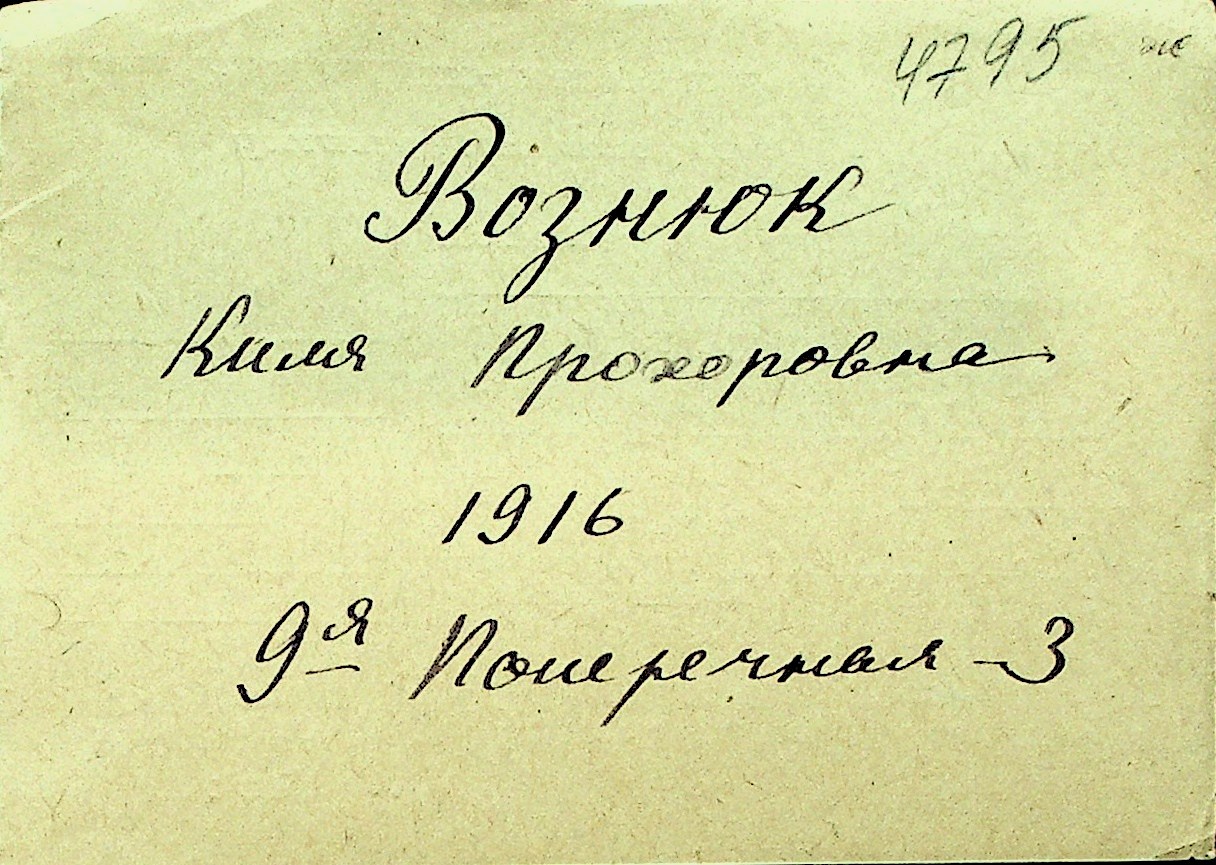 4795 же
Вознюк
Киля Прохоровна
1916
9я Поперечная - 3